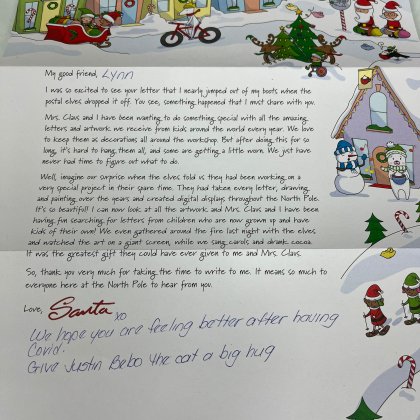 My good friend, Lynn
I was so excited to see your letter that I nearly jumped out of my boots when the
postal elves dropped it off. You see, something happened that I must share with you.
Mrs. Claus and I have been wanting to do something special with all the amazing
letters and artwork we receive from kids around the world every year. We love
to keep them as decorations all around the workshop. But after doing this for so
long, it's hard to hang them all, and some are getting a little worn. We just have
never had time to figure out what to do.
Well, imagine our surprise when the elves told us they had been working on a
very special project in their spare time. They had taken every letter, drawing,
and painting over the years and created digital displays throughout the North Pole.
It's so beautiful! I can now look at all the artwork and Mrs. Claus and I have been
having fun searching for letters from children who are now grown up and have
kids of their own! We even gathered around the fire last night with the elves
and watched the art on a giant screen, while we sang carols and drank cocoa.
It was the greatest gift they could have ever given to me and Mrs. Claus.
So, thank you very much for taking the time to write to me. It means so much to
everyone here at the North Pole to hear from you.
Love, Santa xo
We hope you are feeling better after having
Covid.
Give Justin Bebo the cat a big hug